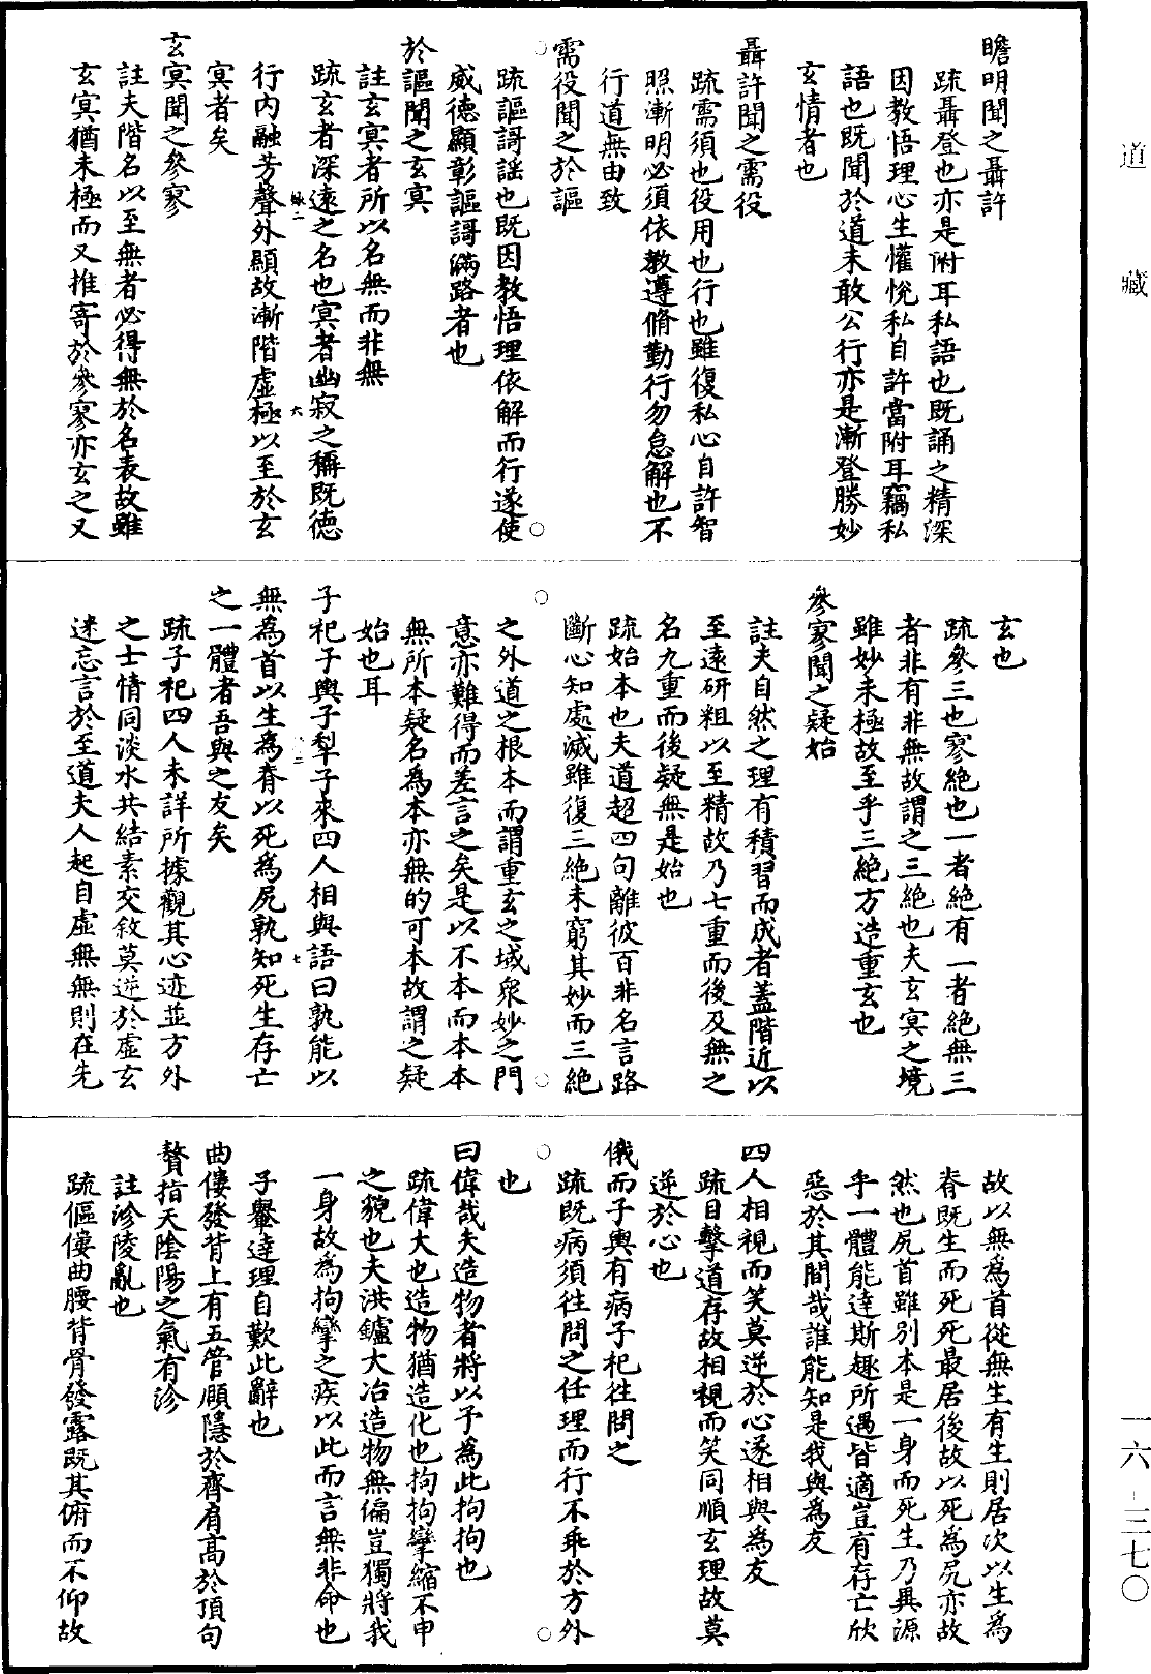 道藏
一六-三七〇
瞻明聞之聶許
疏聶登也亦是附耳私語也既誦之精深
因教悟理心生懽悅私自許當附耳竊私
語也既聞於道未敢公行亦是漸登勝妙
玄情者也
聶許聞之需役
疏需須也役用也行也雖復私心自許智
照漸明必須依教遵脩勤行勿怠解也不
行道無由致
需役聞之於謳
疏謳謌謠也既因教悟理依解而行遂使
威德顯彰謳謌滿路者也
於謳聞之玄冥
註玄冥者所以名無而非無
疏玄者深遠之名也冥者幽寂之稱既德
行內融芳聲外顯故漸階虛極以至於玄
冥者矣
玄冥聞之參寥
註夫階名以至無者必得無於名表故雖
玄冥猶未極而又推寄於參寥亦玄之又
玄也
疏參三也寥絶也一者絶有一者絶無三
者非有非無故謂之三絶也夫玄冥之境
雖妙未極故至乎三絶方造重玄也
參寥聞之疑始
註夫自然之理有積習而成者蓋階近以
至遠研粗以至精故乃七重而後及無之
名九重而後疑無是始也
疏始本也夫道超四句離彼百非名言路
斷心知處滅雖復三絶未窮其妙而三絶
之外道之根本而謂重玄之域衆妙之門
意亦難得而差言之矣是以不本而本本
無所本疑名為本亦無的可本故謂之疑
始也耳
子祀子輿子犁子來四人相與語曰孰能以
無為首以生為脊以死為尻孰知死生存亡
之一體者吾與之友矣
疏子祀四人未詳所據觀其心迹並方外
之士情同淡水共結素交敘莫逆於虛玄
迷忘言於至道夫人起自虛無無則在先
故以無為首從無生有生則居次以生為
脊既生而死死最居後故以死為尻亦故
然也尻首雖別本是一身而死生乃異源
乎一體能達斯趣所遇皆適豈有存亡欣
惡於其間哉誰能知是我與為友
四人相視而笑莫逆於心遂相與為友
疏目擊道存故相視而笑同順玄理故莫
逆於心也
俄而子輿有病子祀往問之
疏既病須往問之任理而行不乖於方外
也
曰偉哉夫造物者將以予為此拘拘也
疏偉大也造物猶造化也拘拘攣縮不申
之貌也夫洪鑪大冶造物無偏豈獨將我
一身故為拘攣之疾以此而言無非命也
子轝達理自歎此辭也
曲僂發背上有五管頤隱於齊肩高於頂句
贅指天陰陽之氣有沴
註沴陵亂也
疏傴僂曲腰背骨發露既其俯而不仰故